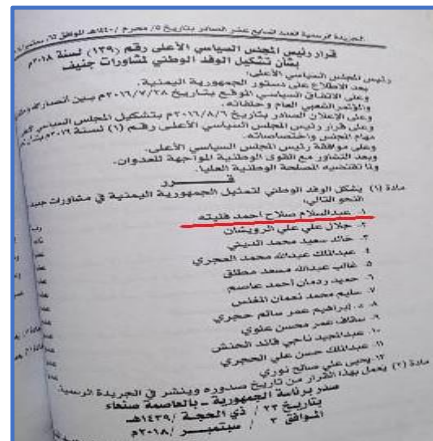 الجريدة الرسمية العدد السابع عشر الصادر بتاريخ ٥ / محرم / ١٤٤٠هـ الموافق
قرار رئيس المجلس السياسي الأعلى رقم (١٣٩) لسنة ٢٠١٨م
بشأن تشكيل الوفد الوطني لمشاورات جنيف
رئيس المجلس السياسي الأعلى:
بعد الاطلاع على دستور الجمهورية اليمنية.
وعلى الاتفاق السياسي الموقع بتاريخ ٢٠١٦/٧/٢٨م بين أنصار الله
والمؤتمر الشعبي العام وحلفائه.
وعلى الإعلان الصادر بتاريخ ٢٠١٦/٨/٦م بتشكيل المجلس السياسي
وعلى قرار رئيس المجلس السياسي الأعلى رقم (١) لسنة ٢٠١٦م
مهام المجلس واختصاصاته.
وعلى موافقة رئيس المجلس السياسي الأعلى.
وبعد التشاور مع القوى الوطنية المواجهة للعدوان.
ولما تقتضيه المصلحة الوطنية العليا.
قـــــرر
مادة (١) يشكل الوفد الوطني لتمثيل الجمهورية اليمنية في مشاورات
النحو التالي:
١. عبدالسلام صلاح أحمد فليته
٢. جلال علي علي الرويشان
٣. خالد سعيد محمد الديني
٤. عبدالملك عبدالله محمد العجري
٥. غالب عبدالله مسعد مطلق
٦. حميد ردمان أحمد عاصم
٧. سليم محمد نعمان المغلس
٨. د. إبراهيم عمر سالم حجري
٩. سقاف عمر محسن علوي
١٠. عبدالمجيد ناجي قائد الحنش
١١. عبدالملك حسن علي الحجري
١٢. يحيى علي صالح نوري
مادة (٢) يعمل بهذا القرار من تاريخ صدوره وينشر في الجريدة الرسمية.
صدر برئاسة الجمهورية - بالعاصمة صنعاء
بتاريخ ٢٣ / ذي الحجة / ١٤٣٩هـ
الموافق ٣ / سبتمبر / ٢٠١٨م